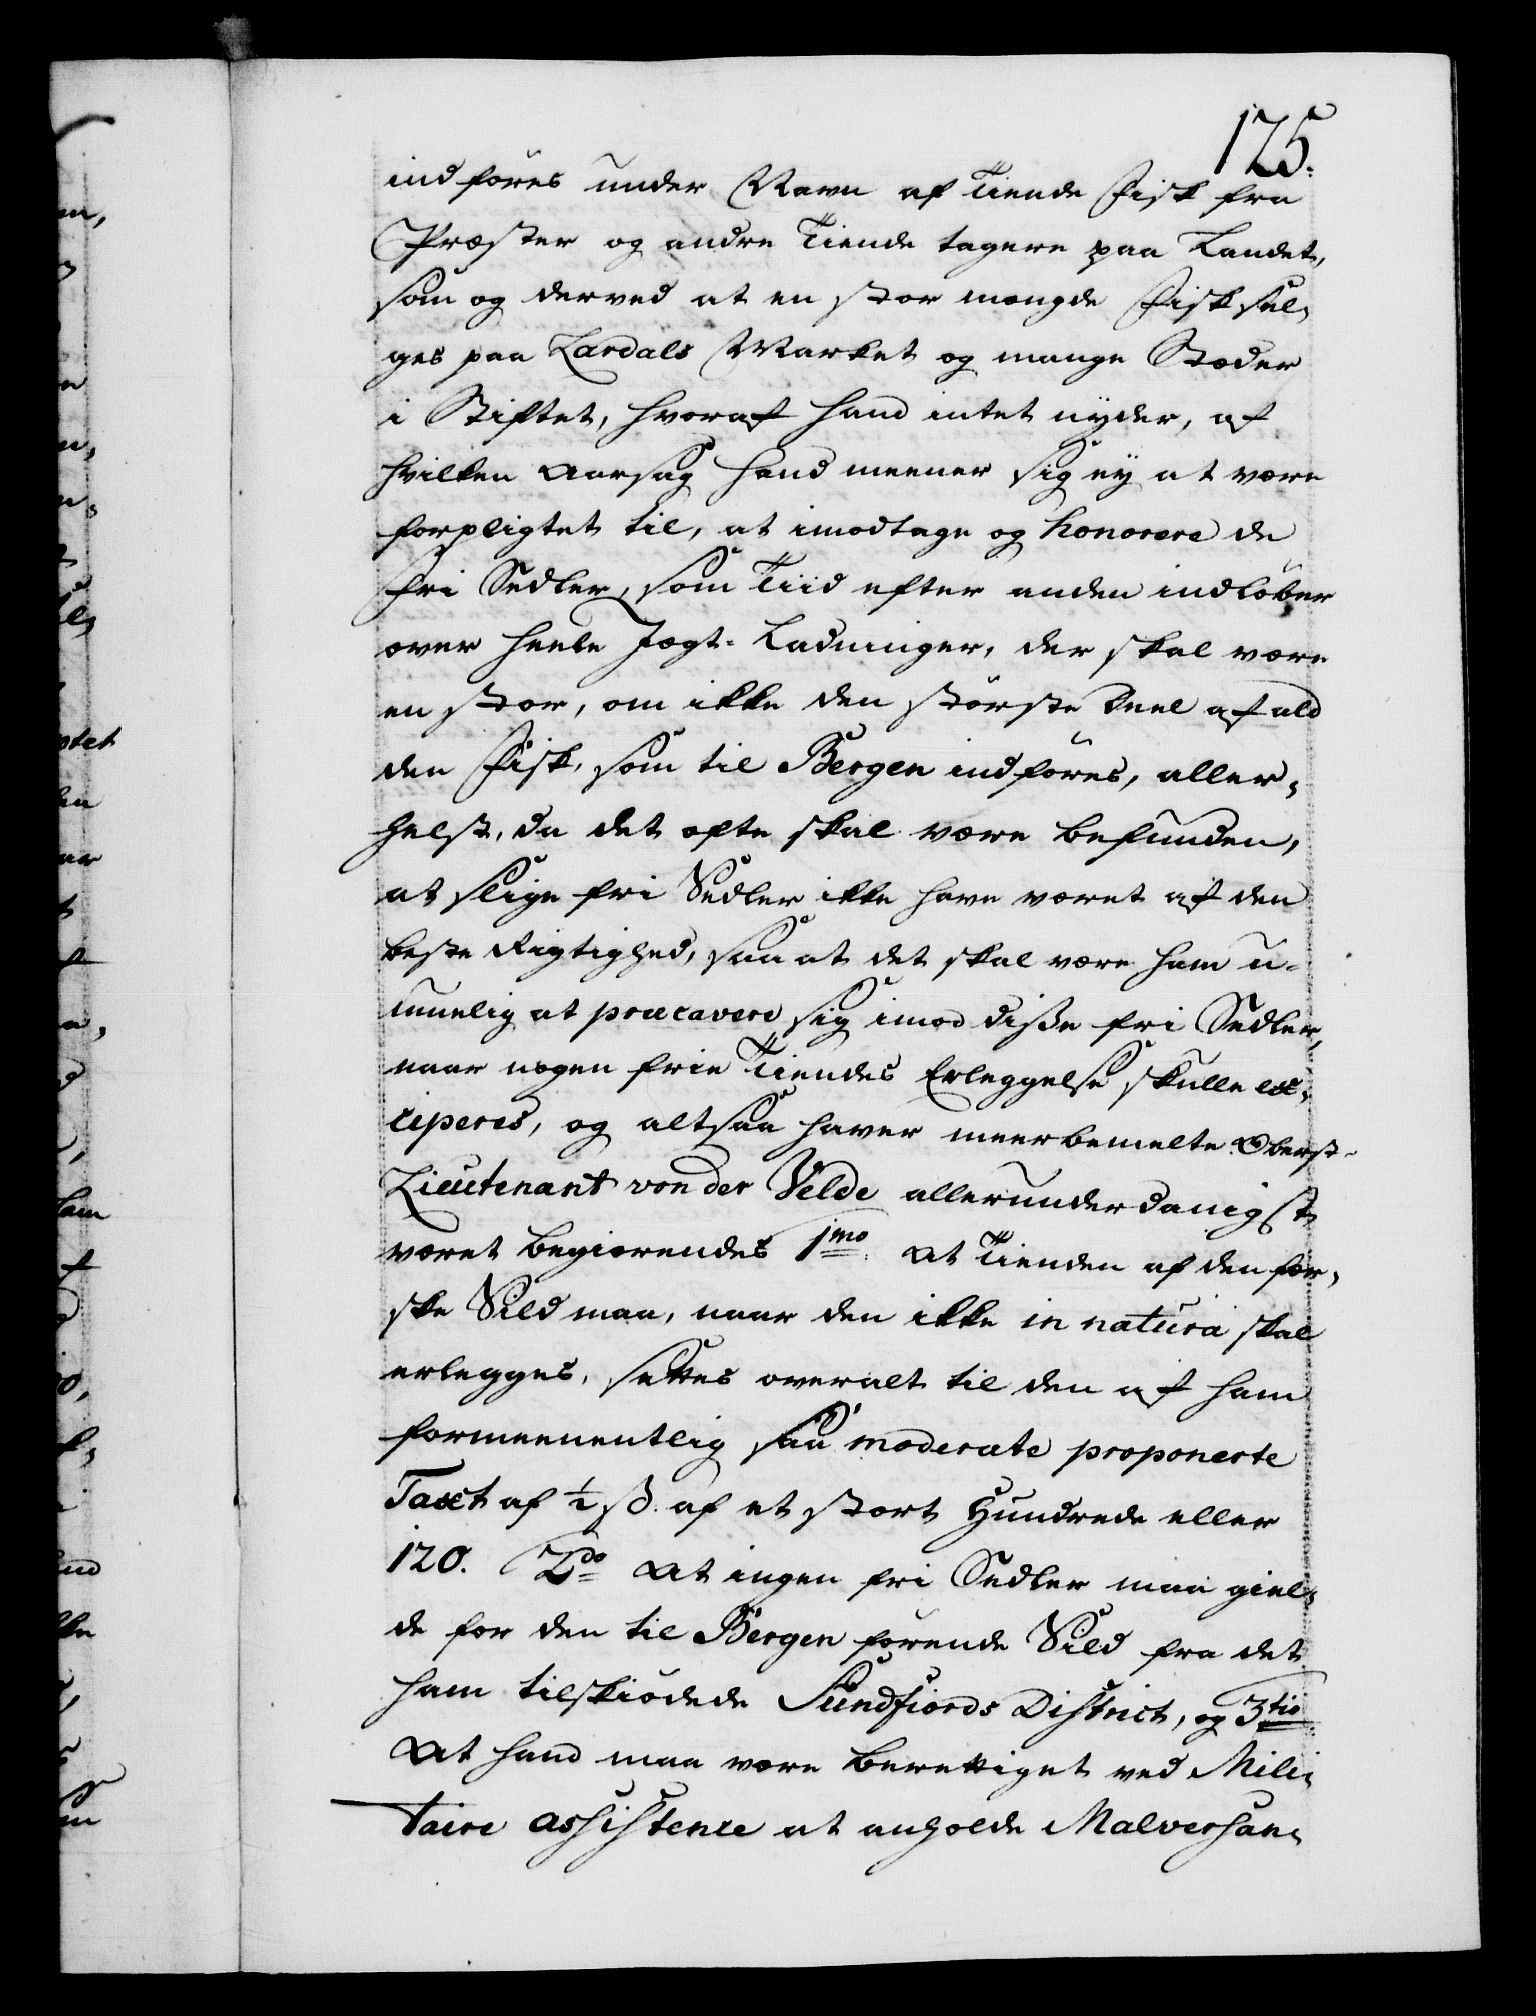 125.
indföres under Navn af Tiende Fisk fra
Præster og andre Tiende tagere paa Landet,
som og derved at en stor mængde Fisk sæl-
ges paa Lardals Marked og mange Stæder
i Stiftet, hvoraf hand intet nyder, af
hvilken Aarsag hand meener sig ey at være
forpligtet til, at imodtage og honorere de
fri Sedler, som Tiid efter anden indlöber
over heele Jægt-Ladninger, der skal være
en stor, om ikke den störste Deel af ald
den Fisk, som til Bergen indföres, aller-
helst, da det ofte skal være befunden,
at slige fri Sedler ikke have været af den
beste Rigtighed, saa at det skal være ham u-
muelig at præcavere sig imod disse fri Sedler,
naar nogen frie Tiendes Erleggelse skulle ex-
ciperes, og altsaa haver meerbemelte Oberst-
Lieutenant von der Velde allerunderdanigst
været begiærendes 1mo At Tienden af den fer-
ske Sild maa, naar den ikke in natura skal
erlegges, settes overalt til den af ham
formeenentlig saa moderate proponerte
Taxt af ½ ß. af et stort Hundrede eller
120. 2do At ingen fri Sedler maa giel-
de for den til Bergen förende Sild fra det
ham tilskiödede Sundfiords District, og 3tio
At hand maa være berettiget ved Mili-
taire assistence at anholde Malversan-